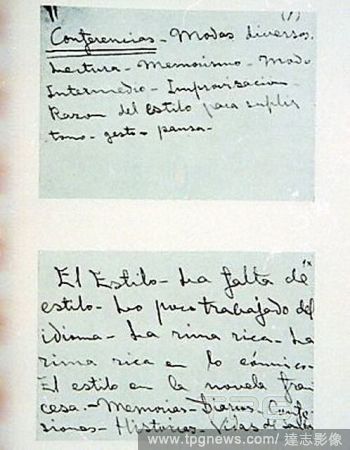 (1)
Conferencias - Modos diversos.
Lectura - Memorismo - Modo
Intermedio - Improvisacion -
Razon del estilo para suplir
tono - gesto - pausa -
El Estilo - La falta de
estilo - Lo poco trabajado del
idioma - La rima rica - La
rima rica en lo cómico -
El estilo en la novela fran
cesa - Memorias - Diarios - Confe
siones - Historias - Vidas de
www.tpgnews.com / 達志影像